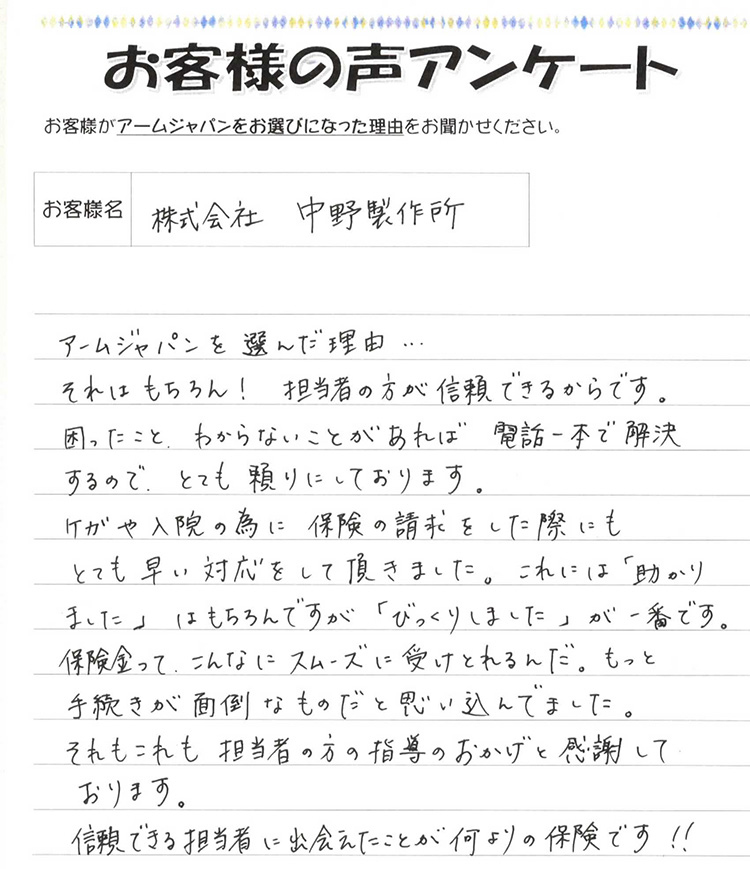 お客様の声アンケート
お客様がアームジャパンをお選びになった理由をお聞かせください。
お客様名
株式会社 中野製作所
アームジャパンを選んだ理由…
それはもちろん! 担当者の方が信頼できるからです。
困ったこと、わからないことがあれば 電話一本で解決
するので、とても頼りにしております。
ケガや入院の為に 保険の請求をした際にも
とても早い対応をして頂きました。これには「助かり
ました」はもちろんですが「びっくりしました」が一番です。
保険金って、こんなにスムーズに受けとれるんだ。もっと
手続きが面倒なものだと思い込んでました。
それもこれも担当者の方の指導のおかげと感謝して
おります。
信頼できる担当者に出会えたことが何よりの保険です!!